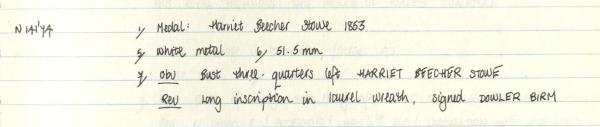 N 141'74 1/ Medal: Harriet Beecher Stowe 1853
5/ White metal 6/ 51.5 mm
7/ Obv Bust three-quarters left HARRIET BEECHER STOWE
Rev Long inscription in laurel wreath, signed DOWLER BIRM